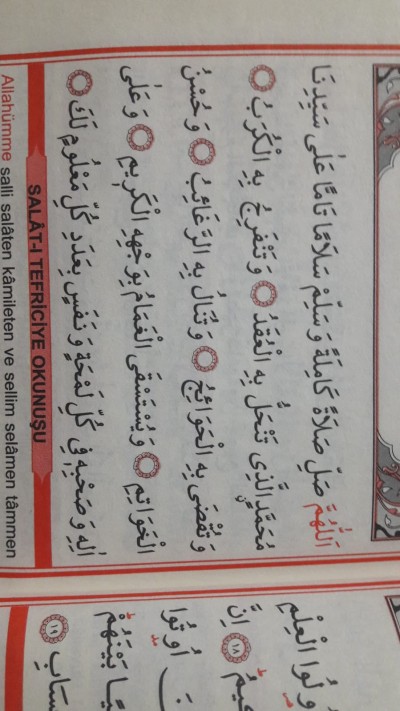 اَللّٰهُمَّ صَلِّ صَلَاةً كَامِلَةً وَسَلِّمْ سَلَامًا تَامًّا عَلٰى سَيِّدِنَا
مُحَمَّدٍ الَّذِي تَنْحَلُّ بِهِ الْعُقَدُ ۝ وَتَنْفَرِجُ بِهِ الْكُرَبُ ۝
وَتُقْضٰى بِهِ الْحَوَائِجُ ۝ وَتُنَالُ بِهِ الرَّغَائِبُ ۝ وَحُسْنُ
الْخَوَاتِيمِ ۝ وَيُسْتَسْقَى الْغَمَامُ بِوَجْهِهِ الْكَرِيمِ ۝ وَعَلٰى
اٰلِهِ وَصَحْبِهِ فِي كُلِّ لَمْحَةٍ وَنَفَسٍ بِعَدَدِ كُلِّ مَعْلُومٍ لَكَ ۝
SALÂT-I TEFRİCİYE OKUNUŞU
Allahümme salli salâten kâmileten ve sellim selâmen tâmmen
الْعِلْمِ
﴿١٨﴾ اِنَّ
اُوتُوا
بَيْنَهُمْ
﴿١٩﴾